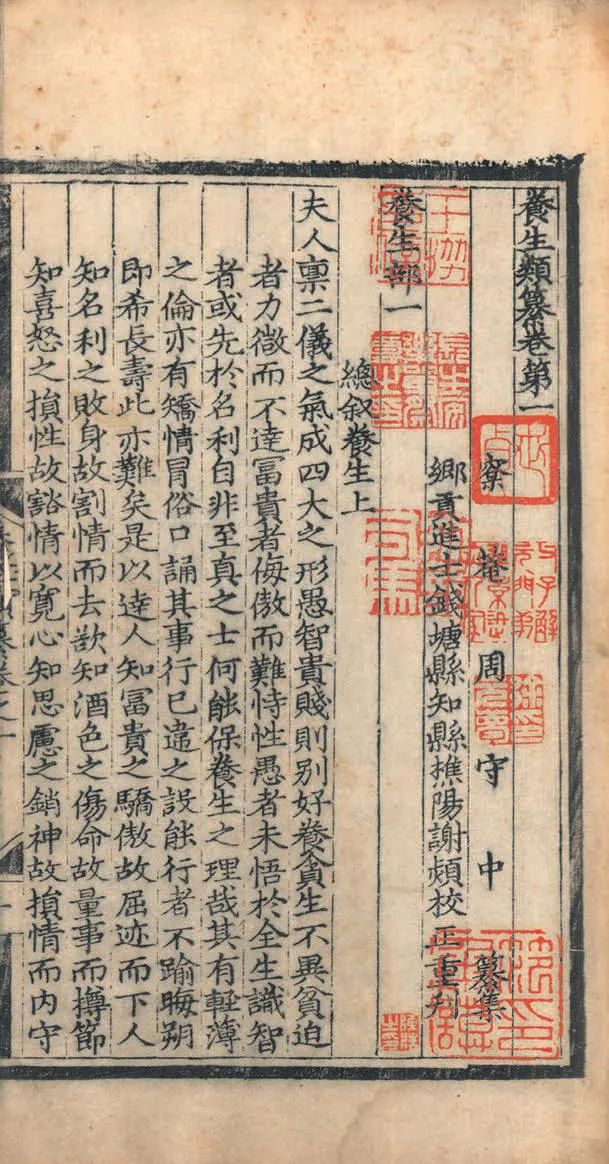 養生類纂卷第一
窠菴周守中纂集
鄉貢進士錢塘縣知縣樵陽謝熲校正重刊
養生部一
總叙養生上
夫人禀二儀之氣成四大之形愚智貴賤則别好養貪生不異貧迫
者力微而不達冨貴者侮傲而難恃性愚者未悟於全生識智
者或先於名利自非至真之士何能保養生之理哉其有輕薄
之倫亦有矯情冒俗口誦其事行已違之設能行者不踰晦朔
即希長壽此亦難矣是以達人知冨貴之驕傲故屈迹而下人
知名利之敗身故割情而去欲知酒色之傷命故量事而撙節
知喜怒之損性故豁情以寬心知思慮之銷神故損情而内守